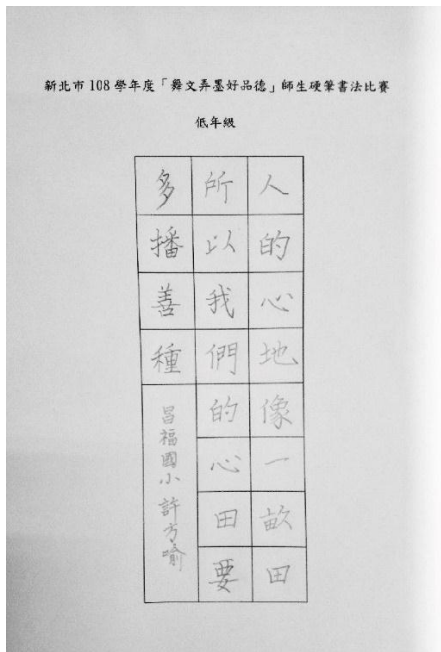 新北市 108 學年度「舞文弄墨好品德」師生硬筆書法比賽
低年級
人的心地像一畝田
所以我們的心田要
多播善種
昌福國小 許方喻